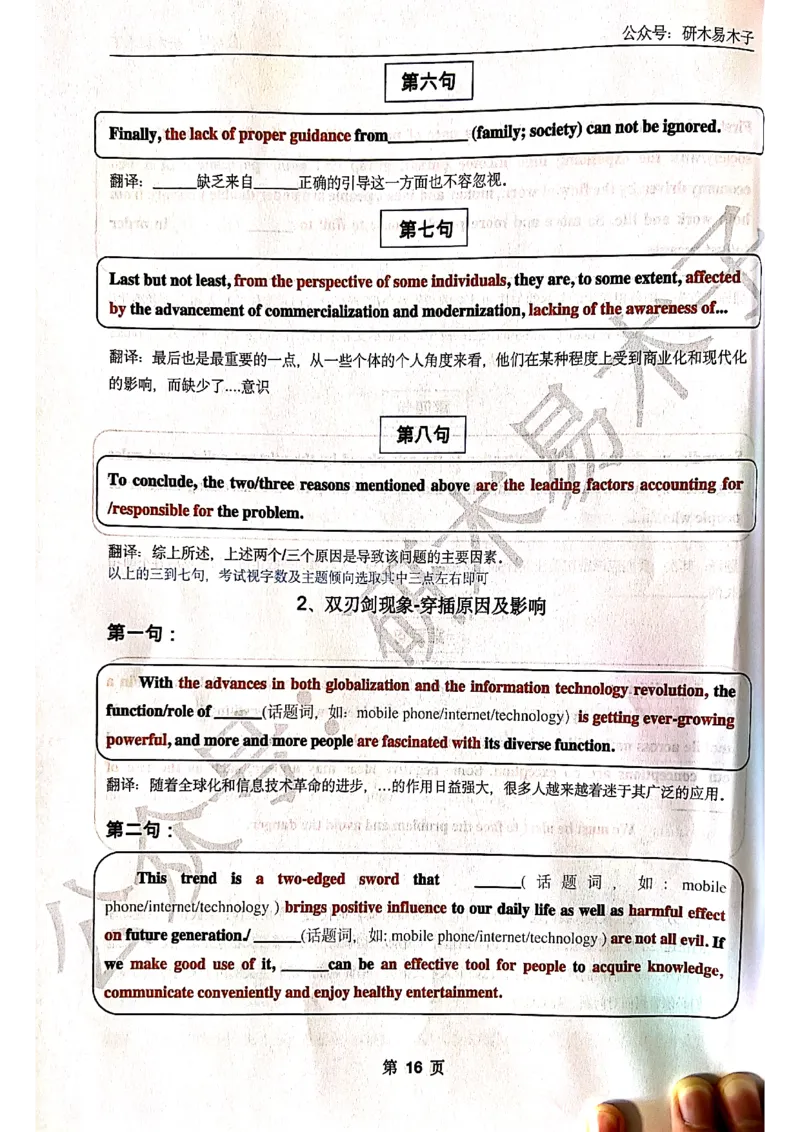 公众号：研木易木子
第六句
Finally, the lack of proper guidance from________ (family; society) can not be ignored.
翻译：_____缺乏来自_____正确的引导这一方面也不容忽视.
第七句
Last but not least, from the perspective of some individuals, they are, to some extent, affected
by the advancement of commercialization and modernization, lacking of the awareness of...
翻译：最后也是最重要的一点，从一些个体的个人角度来看，他们在某种程度上受到商业化和现代化
的影响，而缺少了....意识
第八句
To conclude, the two/three reasons mentioned above are the leading factors accounting for
/responsible for the problem.
翻译：综上所述，上述两个/三个原因是导致该问题的主要因素.
以上的三到七句，考试视字数及主题倾向选取其中三点左右即可
2、双刃剑现象-穿插原因及影响
第一句：
With the advances in both globalization and the information technology revolution, the
function/role of _____(话题词，如：mobile phone/internet/technology) is getting ever-growing
powerful, and more and more people are fascinated with its diverse function.
翻译：随着全球化和信息技术革命的进步，...的作用日益强大，很多人越来越着迷于其广泛的应用.
第二句：
This trend is a two-edged sword that _____( 话 题 词 ， 如 ： mobile
phone/internet/technology ) brings positive influence to our daily life as well as harmful effect
on future generation./ _____(话题词，如: mobile phone/internet/technology ) are not all evil. If
we make good use of it, _____can be an effective tool for people to acquire knowledge,
communicate conveniently and enjoy healthy entertainment.
第 16 页
公众号：研木易木子